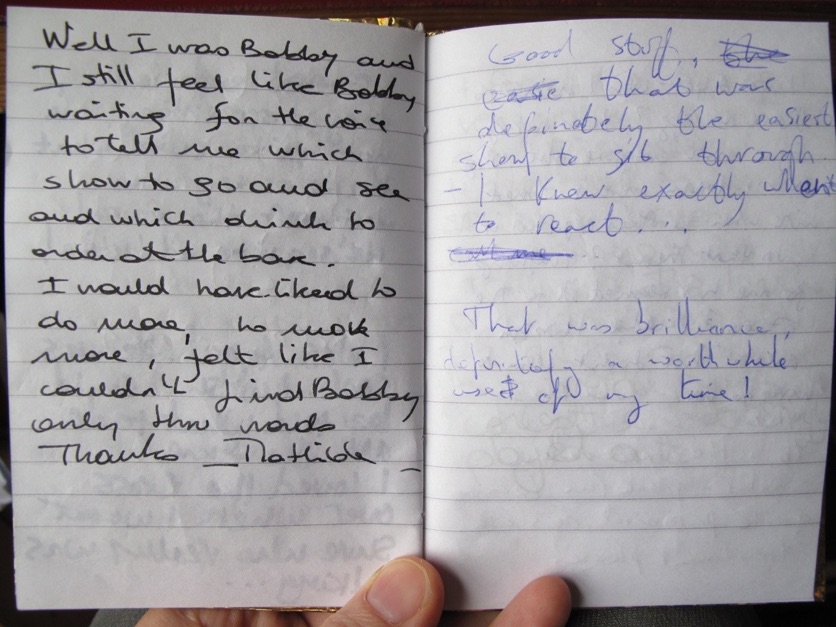 Well I was Bobby and
I still feel like Bobby
waiting for the voice
to tell me which
show to go and see
and which drink to
order at the bare.
I would have liked to
do more, to
more, felt like I
couldn't find Bobby
only thru words
Thanks _ Mathilde _
Good stuff, the
that was
definately the easiest
show to sit through
- I knew exactly when
to react...
That was brilliance,
definitely a worthwhile
use of my time!